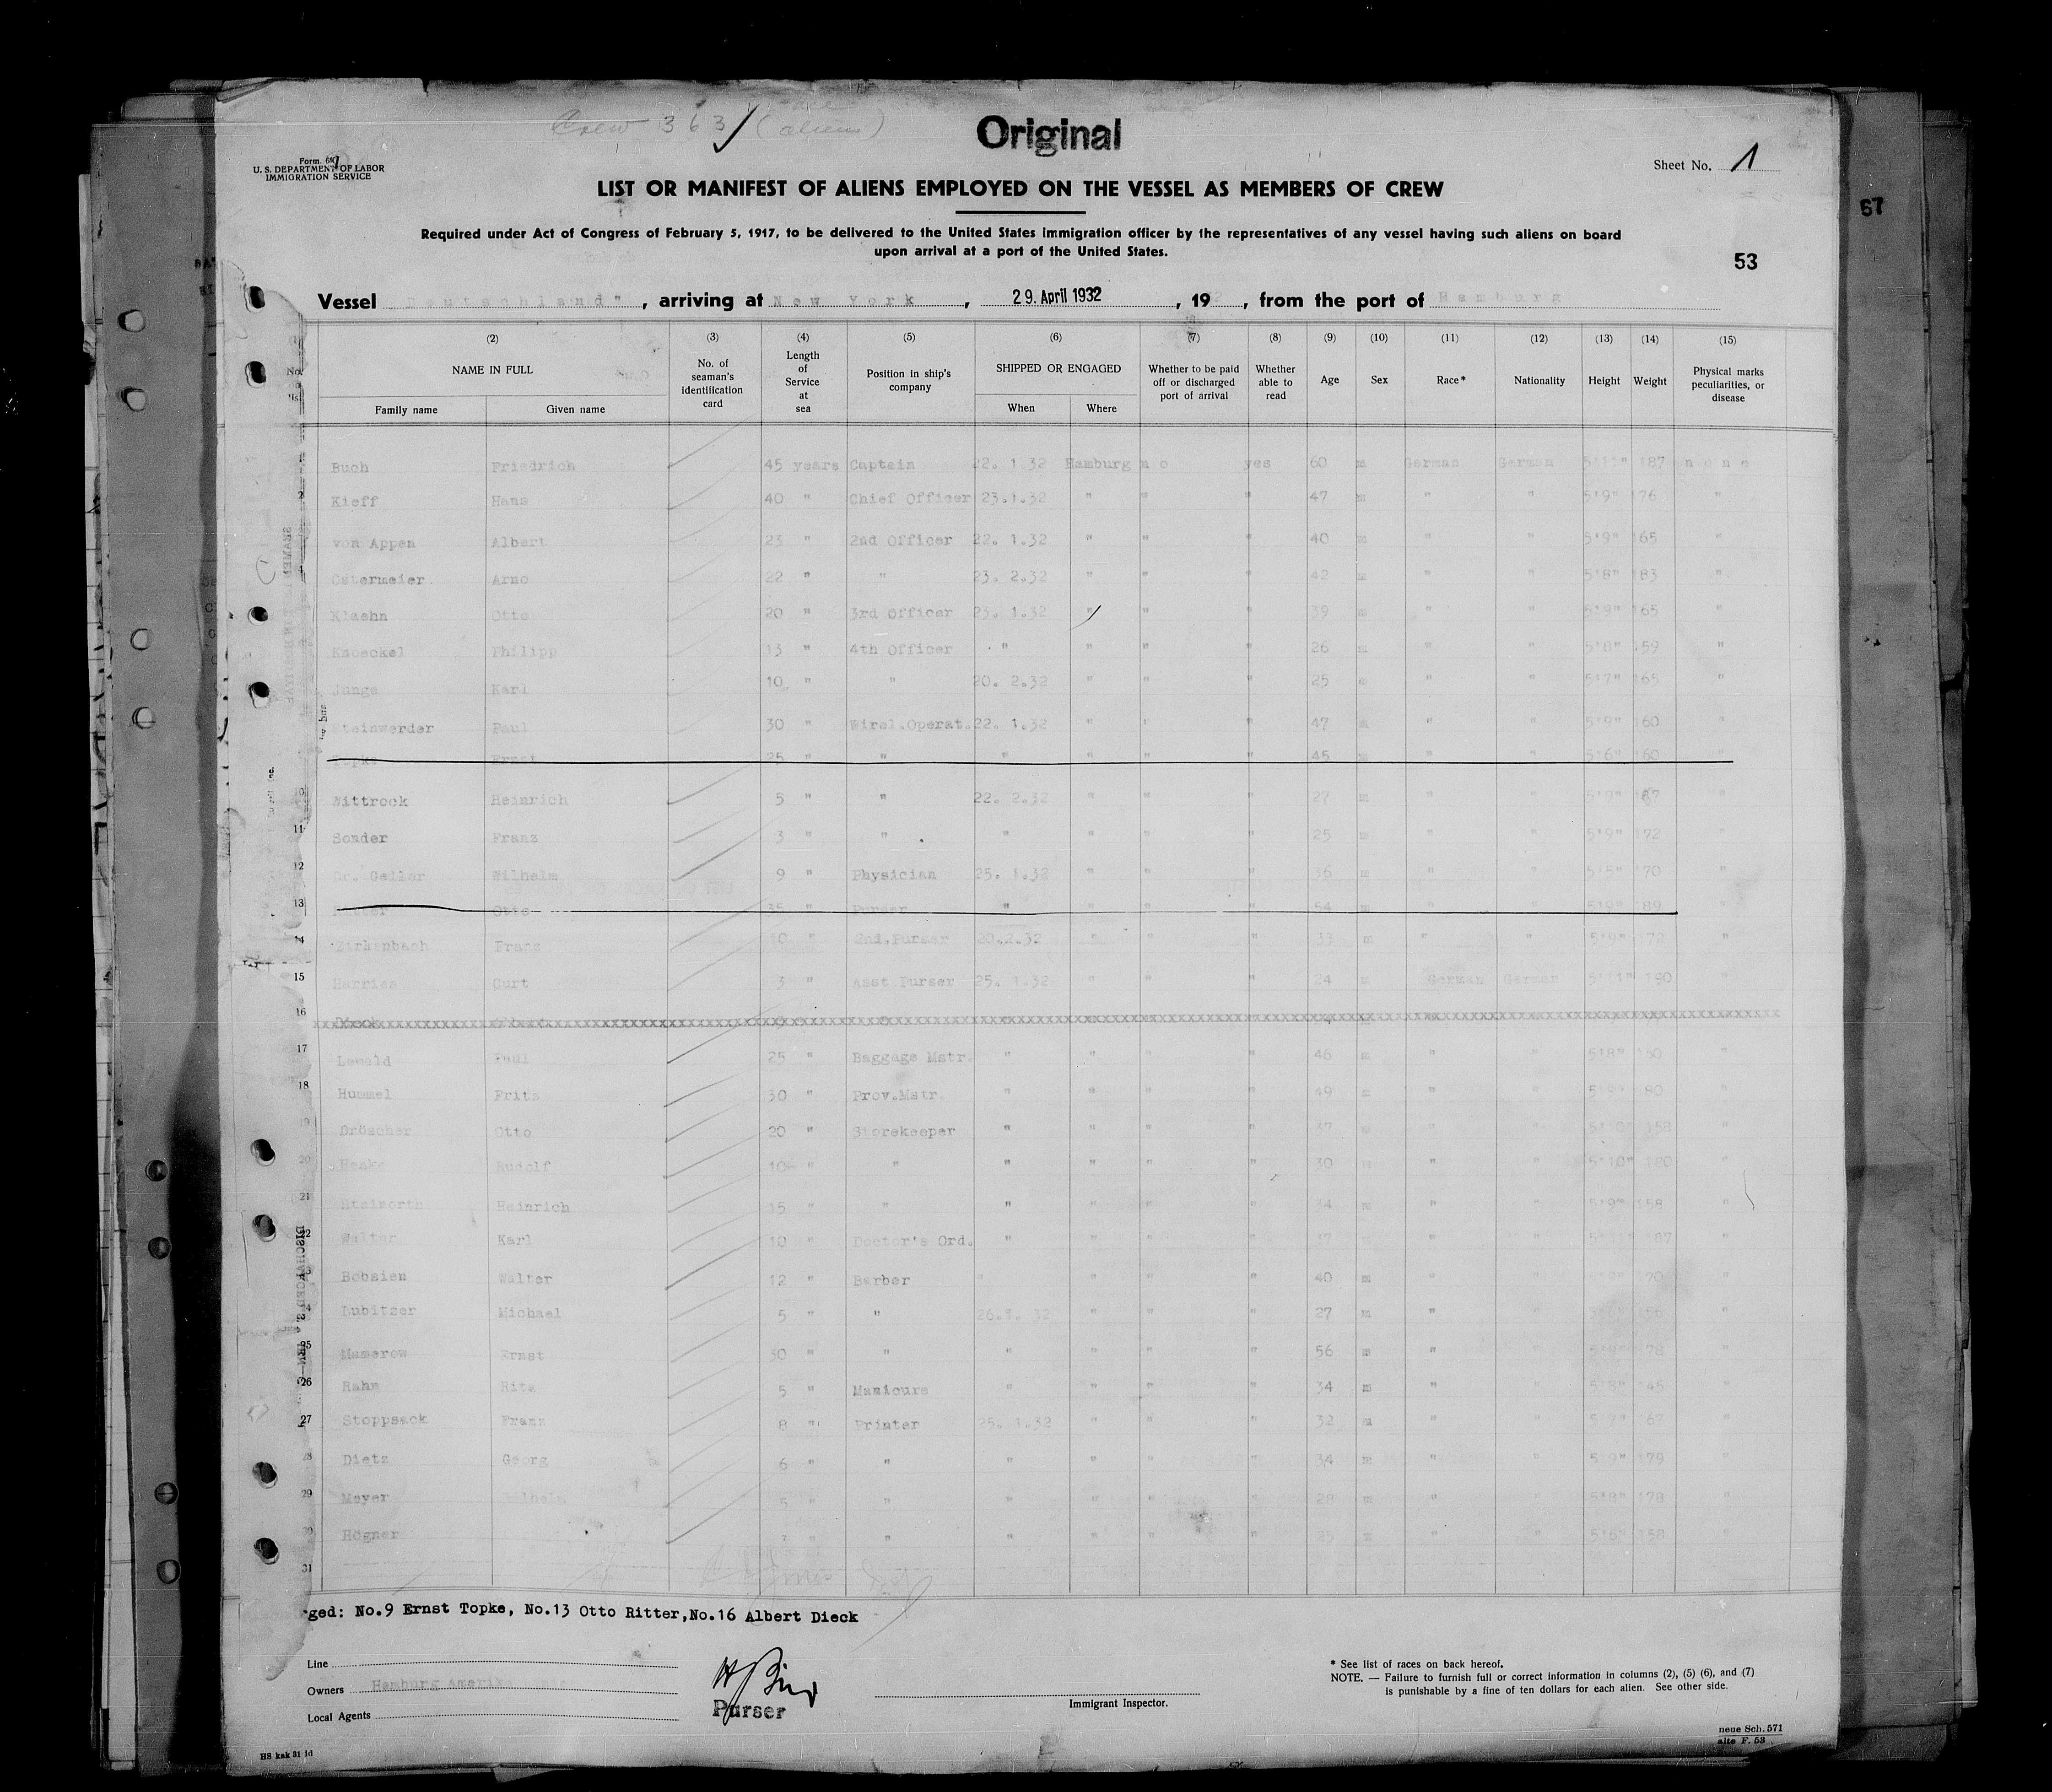 Crew 363 (aliens)
Original
Form 689
U. S. DEPARTMENT OF LABOR
IMMIGRATION SERVICE
Sheet No. 1
LIST OR MANIFEST OF ALIENS EMPLOYED ON THE VESSEL AS MEMBERS OF CREW
67
Required under Act of Congress of February 5, 1917, to be delivered to the United States immigration officer by the representatives of any vessel having such aliens on board
upon arrival at a port of the United States.
53
Vessel Deutschland", arriving at New York, 29. April 1932, 19, from the port of Hamburg
(2) (3) (4) (5) (6) (7) (8) (9) (10) (11) (12) (13) (14) (15)
No. NAME IN FULL No. of seaman's identification card Length of Service at sea Position in ship's company SHIPPED OR ENGAGED Whether to be paid off or discharged port of arrival Whether able to read Age Sex Race* Nationality Height Weight Physical marks peculiarities, or disease
Family name Given name When Where
Buch Friedrich 45 years Captain 22. 1.32 Hamburg no yes 60 m German German 5'11" 187 none
2 Kieff Hans 40 " Chief Officer 23.1.32 " " " 47 m " " 5'9" 176 "
von Appen Albert 23 " 2nd Officer 22. 1.32 " " " 40 m " " 5'9" 165 "
4 Ostermeier Arno 22 " " 23. 2.32 " " " 42 m " " 5'8" 183 "
Klaehn Otto 20 " 3rd Officer 23. 1.32 " " " 39 m " " 5'9" 165 "
Knoeckel Philipp 13 " 4th Officer " " " " 26 m " " 5'8" 159 "
Junge Karl 10 " " 20. 2.32 " " " 25 m " " 5'7" 165 "
Steinwerder Paul 30 " Wirel.Operat. 22. 1.32 " " " 47 m " " 5'9" 160 "
Topke Ernst 25 " " " " " " 45 m " " 5'6" 160 "
10 Wittrock Heinrich 5 " " 22. 2.32 " " " 27 m " " 5'9" 187 "
11 Sonder Franz 3 " " " " " " 25 m " " 5'9" 172 "
12 Dr. Geller Wilhelm 9 " Physician 25. 1.32 " " " 36 m " " 5'5" 170 "
13 Ritter Otto 35 " Purser " " " " 54 m " " 5'9" 189 "
14 Zirkenbach Franz 10 " 2nd.Purser 20.2.32 " " " 33 m " " 5'9" 172 "
15 Harries Curt 3 " Asst Purser 25. 1.32 " " " 24 m German German 5'11" 180 "
16 Dieck
17 Lewald Paul 25 " Baggage Mstr. " " " " 46 m " " 5'8" "
18 Hummel Fritz 30 " Prov.Mstr. " " " " 49 m " " "
19 Dröscher Otto 20 " Storekeeper " " " " 37 m " " 158 "
20 Henke Rudolf 10 " " " " " " 30 m " " 5'10" 180 "
21 Steinorth Heinrich 15 " " " " " " 34 m " " 5'9" 158 "
22 Walter Karl 10 " Doctor's Ord. " " " " 37 m " " "
23 Bobsien Walter 12 " Barber " " " " 40 m " " "
24 Dubitzer Michael 5 " " 26.1. 32 " " " 27 m " " "
25 Mamerow Ernst 30 " " " " " " 56 m " " 178 "
26 Rahn Rita 5 " Manicure " " " " 34 m " " 5'8" 145 "
27 Stoppsack Franz 8 " Printer 25. 1.32 " " " 32 m " " "
28 Dietz Georg 6 " " " " " " 34 m " " 5'9" 179 "
29 Meyer Wilhelm 5 " " " " " " 28 m " " 5'8" 178 "
30 Högner " " " " " " m " " 5'8" 158 "
31
ged: No.9 Ernst Topke, No.13 Otto Ritter,No.16 Albert Dieck
Line
Owners Hamburg Amerik
Local Agents
Purser
Immigrant Inspector.
* See list of races on back hereof.
NOTE. — Failure to furnish full or correct information in columns (2), (5) (6), and (7)
is punishable by a fine of ten dollars for each alien. See other side.
neue Sch. 571
alte F. 53
HS kak 31 id